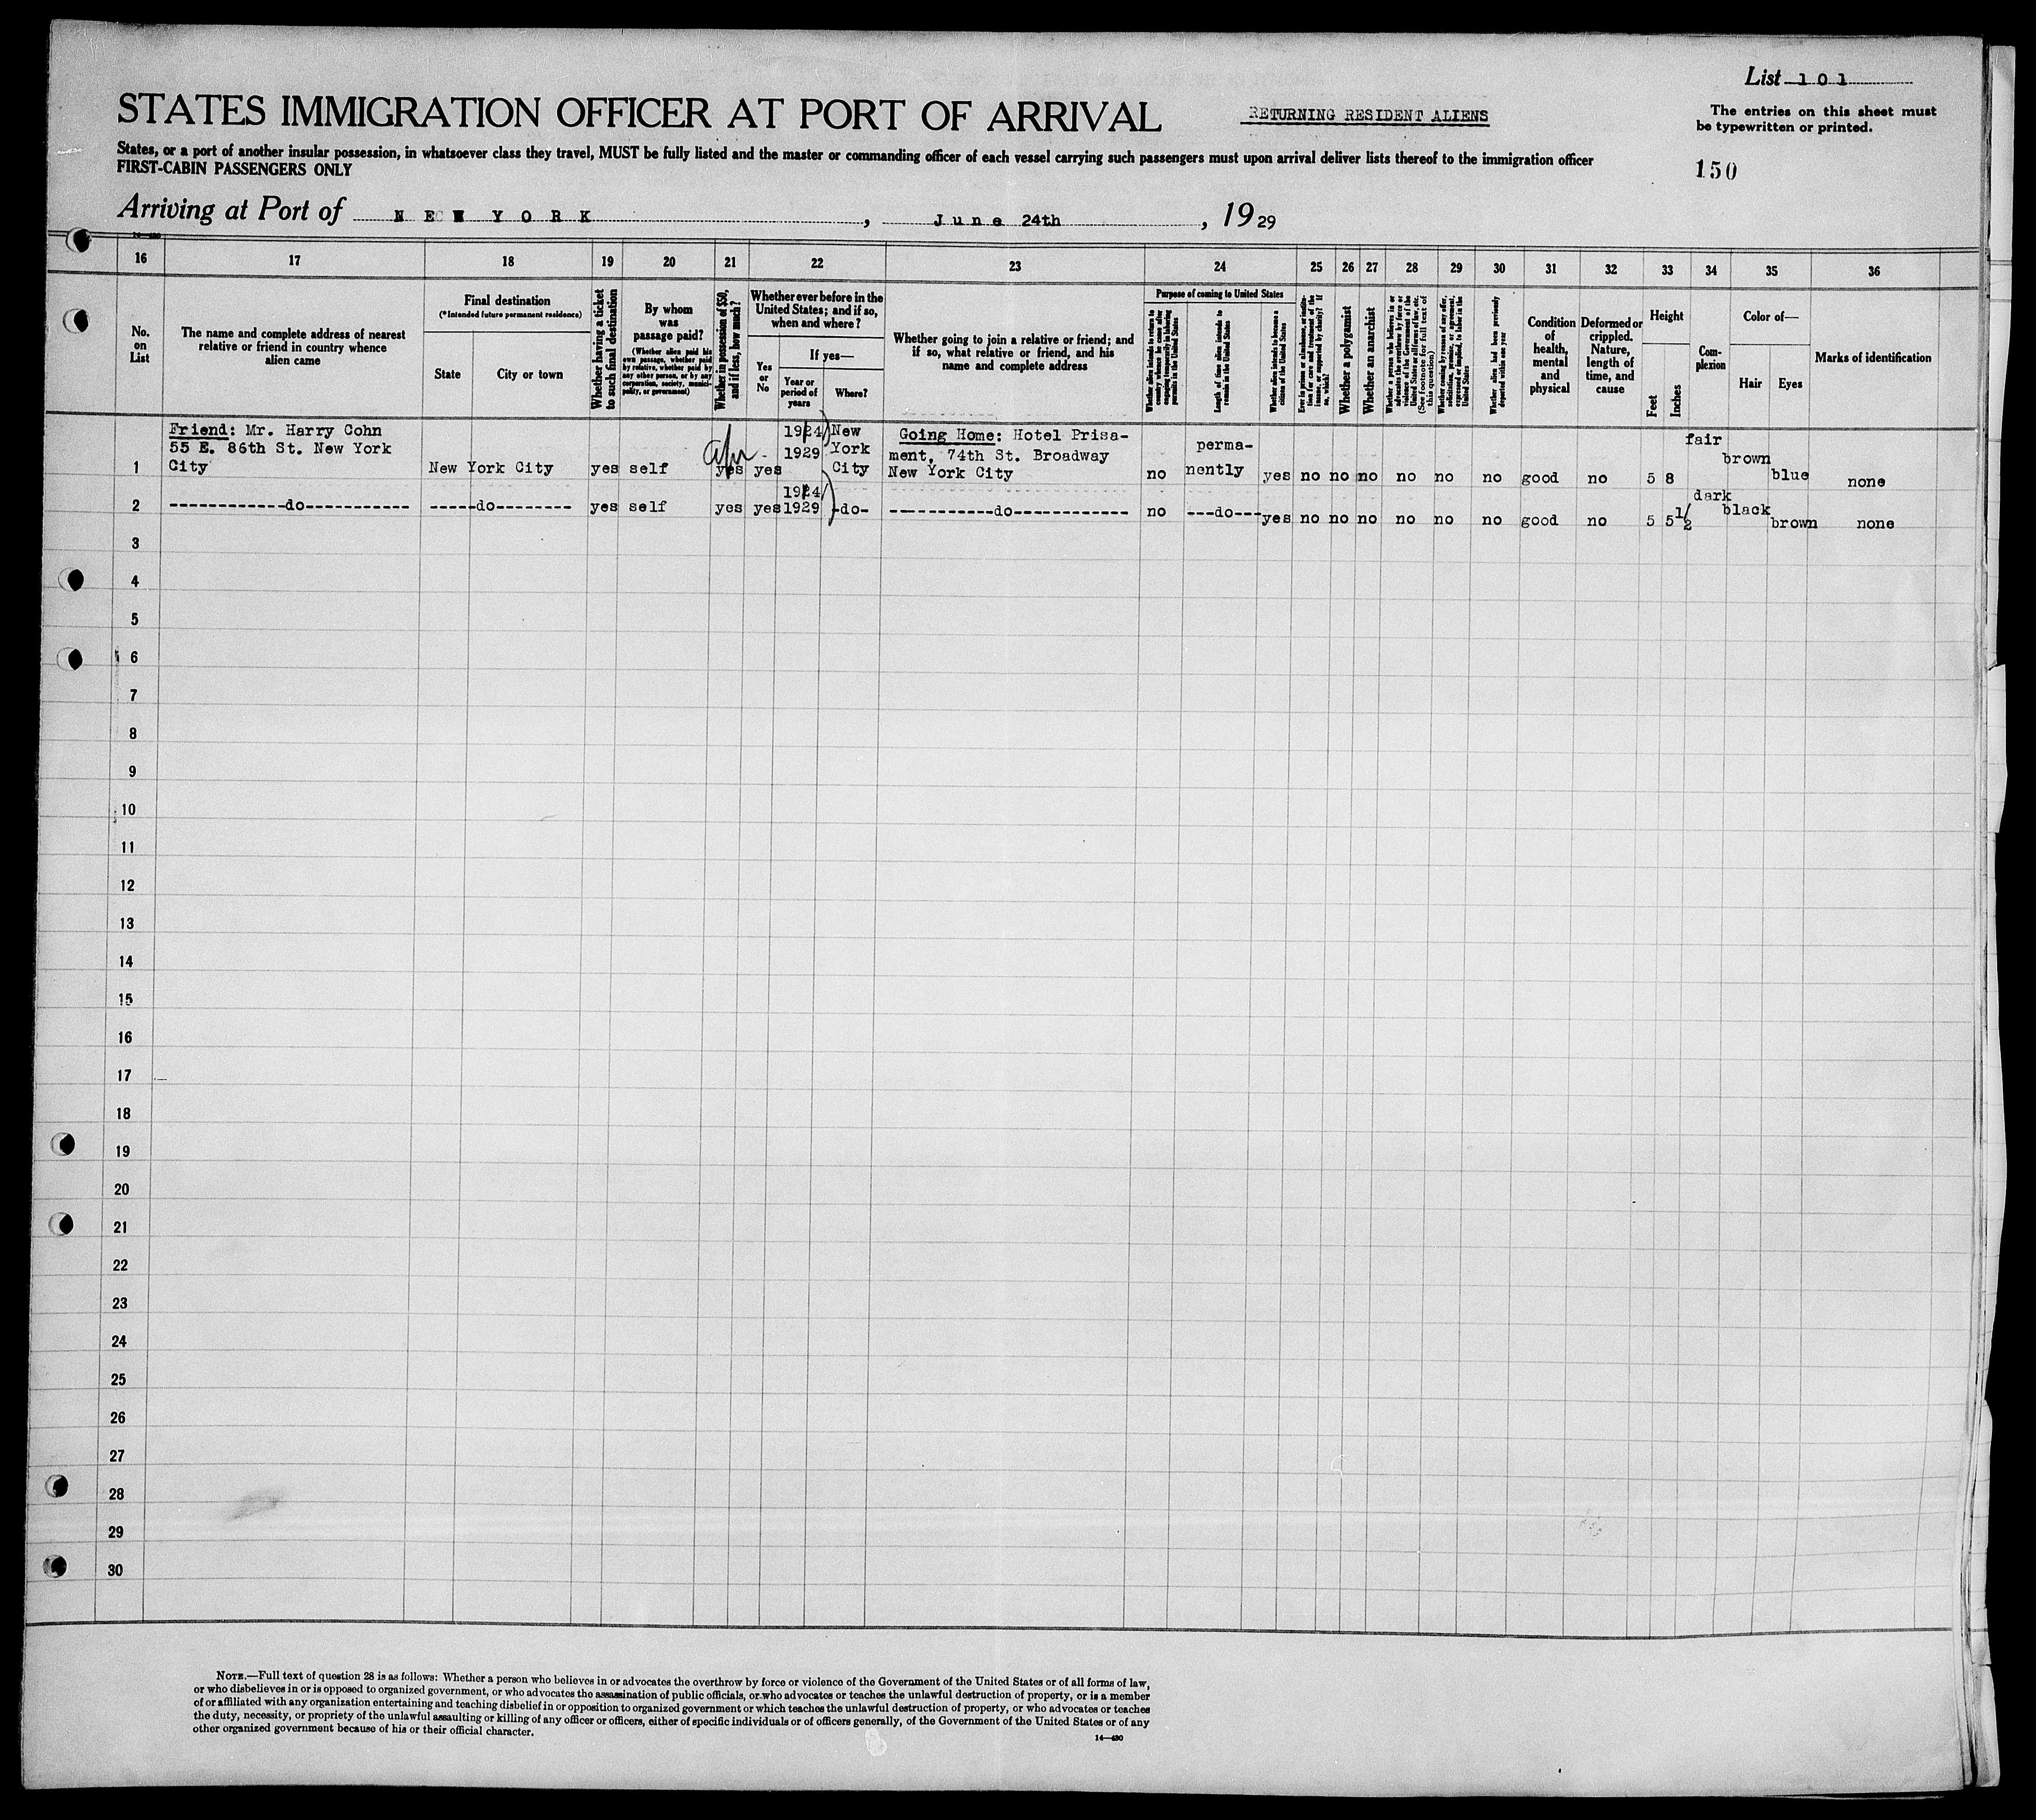 List 101
STATES IMMIGRATION OFFICER AT PORT OF ARRIVAL
RETURNING RESIDENT ALIENS
The entries on this sheet must
be typewritten or printed.
States, or a port of another insular possession, in whatsoever class they travel, MUST be fully listed and the master or commanding officer of each vessel carrying such passengers must upon arrival deliver lists thereof to the immigration officer
FIRST-CABIN PASSENGERS ONLY
150
Arriving at Port of NEW YORK, June 24th, 1929
16 17 18 19 20 21 22 23 24 25 26 27 28 29 30 31 32 33 34 35 36
No.
on
List
The name and complete address of nearest
relative or friend in country whence
alien came
Final destination
(*Intended future permanent residence)
State
City or town
Whether having a ticket
to such final destination
By whom
was
passage paid?
(Whether alien paid his
own passage, whether paid
by relative, whether paid by
any other person, or by any
corporation, society, munici-
pality, or government)
Whether in possession of $50,
and if less, how much?
Whether ever before in the
United States; and if so,
when and where?
Yes
or
No
If yes—
Year or
period of
years
Where?
Whether going to join a relative or friend; and
if so, what relative or friend, and his
name and complete address
Purpose of coming to United States
Whether alien intends to return to
country whence he came after
engaging temporarily in laboring
pursuits in the United States
Length of time alien intends to
remain in the United States
Whether alien intends to become a
citizen of the United States
Ever in prison or almshouse, or institu-
tion for care and treatment of the
insane, or supported by charity? If
so, which?
Whether a polygamist
Whether an anarchist
Whether a person who believes in or
advocates the overthrow by force or
violence of the Government of the
United States or all forms of law, etc.
(See footnote for full text of
this question)
Whether coming by reason of any offer,
solicitation, promise, or agreement,
expressed or implied, to labor in the
United States
Whether alien had been previously
deported within one year
Condition
of
health,
mental
and
physical
Deformed or
crippled.
Nature,
length of
time, and
cause
Height
Feet
Inches
Com-
plexion
Color of—
Hair
Eyes
Marks of identification
1
Friend: Mr. Harry Cohn
55 E. 86th St. New York
City
New York City
yes self yes yes
1924
1929
New
York
City
Going Home: Hotel Prisa-
ment, 74th St. Broadway
New York City
no
perma-
nently
yes no no no no no no good no 5 8 fair brown blue none
2
------------do-----------
-----do--------
yes self yes yes
1924
1929
-do-
------------do------------
no ---do--- yes no no no no no no good no 5 5½ dark black brown none
3
4
5
6
7
8
9
10
11
12
13
14
15
16
17
18
19
20
21
22
23
24
25
26
27
28
29
30
NOTE.—Full text of question 28 is as follows: Whether a person who believes in or advocates the overthrow by force or violence of the Government of the United States or of all forms of law,
or who disbelieves in or is opposed to organized government, or who advocates the assassination of public officials, or who advocates or teaches the unlawful destruction of property, or is a member
of or affiliated with any organization entertaining and teaching disbelief in or opposition to organized government or which teaches the unlawful destruction of property, or who advocates or teaches
the duty, necessity, or propriety of the unlawful assaulting or killing of any officer or officers, either of specific individuals or of officers generally, of the Government of the United States or of any
other organized government because of his or their official character.
14—430